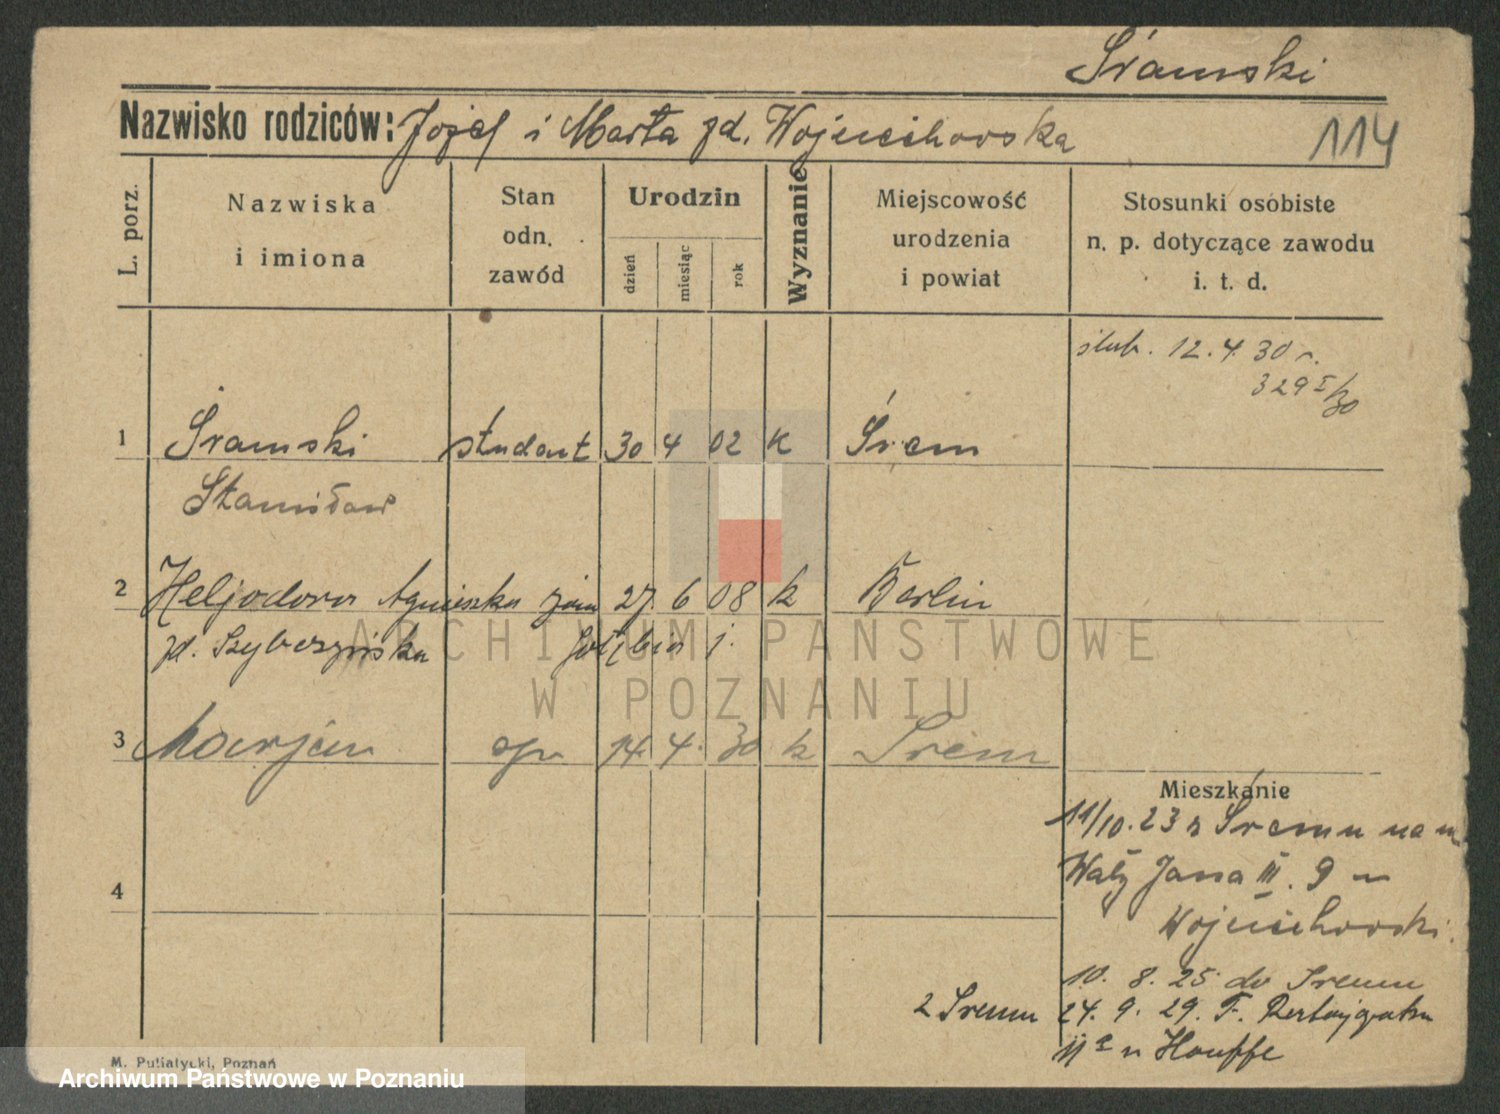 Śramski
Nazwisko rodziców: Józef i Marta zd. Wojciechowska
114
L. porz.
Nazwiska
i imiona
Stan
odn.
zawód
Urodzin
dzień
miesiąc
rok
Wyznanie
Miejscowość
urodzenia
i powiat
Stosunki osobiste
n. p. dotyczące zawodu
i. t. d.
ślub. 12. 4. 30 r.
329 I/30
1 Śramski student 30 4 02 K Śrem
Stanisław
2 Heljodora Agnieszka żona 27. 6 08 k Berlin
zd. Szybczyńska j.
3 Marjan syn 14. 4. 30 k Śrem
Mieszkanie
11/10. 23 z Śremu na m
Wały Jana III. 9 u
Wojciechowski.
10. 8. 25 do Śremu
z Śremu 24. 9. 29. F. Ratajczaka
11a u Hauffe
4
M. Putiatycki, Poznań
ARCHIWUM PAŃSTWOWE
W POZNANIU
Archiwum Państwowe w Poznaniu